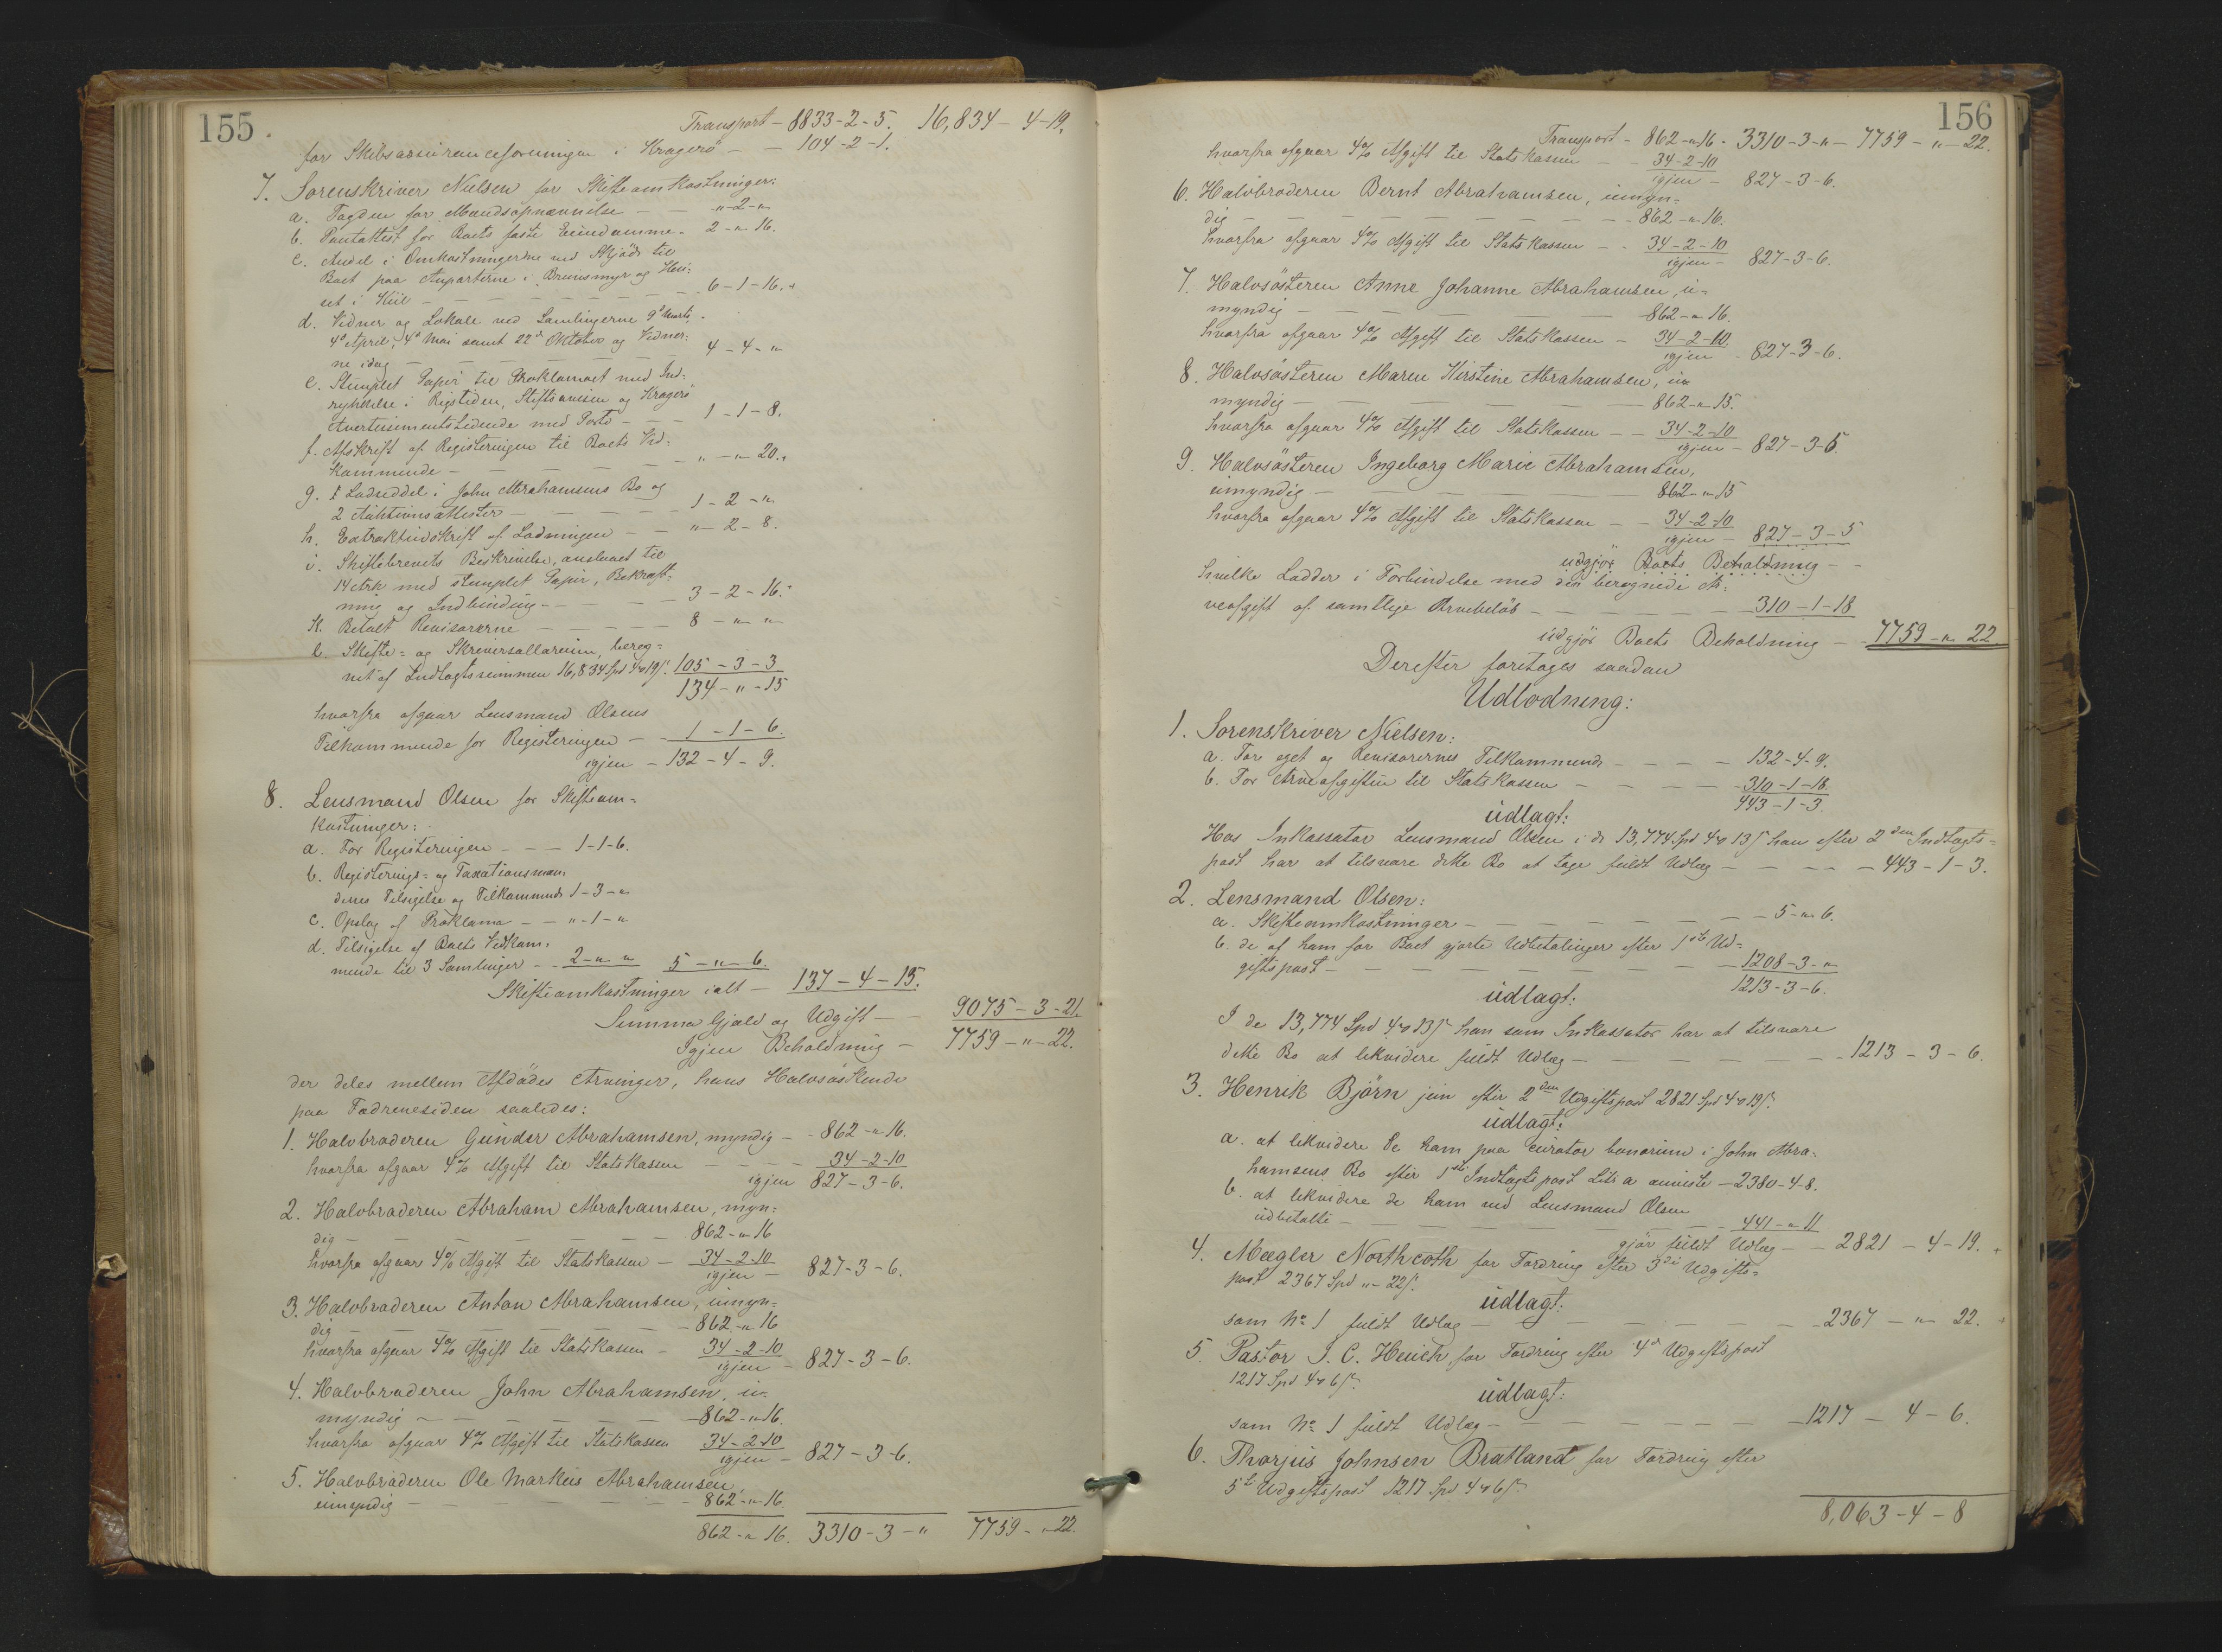 155.
Transport - 8833-2-5. 16,834 - 4-19.
for Skibsassuranceforeningen i Kragerö - - 104-2-1.
7. Sorenskriver Nielsen for Skifteomkostninger:
a. Tagden for Mændsopnævnelse - - "-2-"
b. Pantattest for Boets faste Eiendomme - 2-"-16.
c. Andel i Omkostningerne ved Skjöde til
Boet paa Anparterne i Bruusmyr og Hu-
set i Kiil - - - - 6-1-16.
d. Vidner og Lokale ved Samlingerne 9de Marts
4de April, 4de Mai samt 22de Oktober og Vidner-
ne idag - - - - 4-4-"
e. Stemplet Papir til Proklamaet med Ind-
rykkelse i Rigstiden, Stiftsavisen og Kragerö
Avertissementstidende med Porto - - 1-1-8.
f. Afskrift af Registeringen til Boets Ved-
kommende - - - - "-"-20.
g. 1 Lodseddel i John Abrahamsens Bo og
2 Auktionsattester - - - 1-2-"
h. Extraktudskrift af Lodningen - - "-2-8.
i. Skiftebrevets Beskrivelse, anslaaet til
14 Ark med stemplet Papir, Bekræft-
ning og Indbinding - - - 3-2-16.
k. Betalt Revisorerne - - - - 8-"-"
l. Skifte- og Skriversallarium, bereg-
net af Indtægtssummen 16,834 Spd 4 19 s. 105-3-3
134-"-15
hvorfra afgaar Lensmand Olsens
Tilkommende for Registeringen - - 1-1-6.
igjen - 132-4-9.
8. Lensmand Olsen for Skifteom-
kostninger:
a. For Registeringen - - 1-1-6.
b. Registerings- og Taxationsmæn
denes Tilsigelse og Tilkommende 1-3-"
c. Opslag af Proklama - - "-1-"
d. Tilsigelse af Boets Vedkom-
mende til 3 Samlinger - - 2-"-" 5-"-6.
Skifteomkostninger ialt - 137-4-15.
Summa Gjæld og Udgift - - 9075-3-21.
Igjen Beholdning - 7759-"-22.
der deles mellem Afdödes Arvinger, hans Halvsöskende
paa Fædrenesiden saaledes:
1. Halvbroderen Gunder Abrahamsen, myndig - - 862-"-16.
hvorfra afgaar 4% Afgift til Statskassen - - - 34-2-10
igjen 827-3-6.
2. Halvbroderen Abraham Abrahamsen, myn-
dig - - - - - - 862-"-16
hvorfra afgaar 4% Afgift til Statskassen - 34-2-10
igjen - 827-3-6.
3. Halvbroderen Anton Abrahamsen, umyn-
dig - - - - - - 862-"-16
hvorfra afgaar 4% Afgift til Statskassen - 34-2-10
igjen - 827-3-6.
4. Halvbroderen John Abrahamsen, u-
myndig - - - - - 862-"-16.
hvorfra afgaar 4% Afgift til Statskassen 34-2-10
igjen - 827-3-6.
5. Halvbroderen Ole Markus Abrahamsen,
umyndig - - - - - 862-"-16.
862-"-16. 3310-3-" 7759-"-22.
156
Transport - 862-"-16. 3310-3-"- 7759-"-22.
hvorfra afgaar 4% Afgift til Statskassen - - 34-2-10
igjen - 827-3-6.
6. Halvbroderen Bernt Abrahamsen, umyn-
dig - - - - - - 862-"-16.
hvorfra afgaar 4% Afgift til Statskassen - - 34-2-10
igjen - 827-3-6.
7. Halvsösteren Anne Johanne Abrahamsen, u-
myndig - - - - - 862-"-16.
hvorfra afgaar 4% Afgift til Statskassen - 34-2-10.
igjen - 827-3-6.
8. Halvsösteren Maren Kirstine Abrahamsen, u-
myndig - - - - - 862-"-15.
hvorfra afgaar 4% Afgift til Statskassen - - 34-2-10
igjen - 827-3-5.
9. Halvsösteren Ingeborg Marie Abrahamsen,
umyndig - - - - - 862-"-15
hvorfra afgaar 4% Afgift til Statskassen - - 34-2-10
igjen - 827-3-5
udgjör Boets Beholdning - -
hvilke Lodder i Forbindelse med den beregnede Ar-
veafgift af samtlige Arvebeløb - - - - 310-1-18
udgjör Boets Beholdning - 7759-"-22
Derefter foretages saadan
Udlodning:
1. Sorenskriver Nielsen:
a. For eget og Revisorernes Tilkommende - - - 132-4-9.
b. For Arveafgiften til Statskassen - - - 310-1-18.
443-1-3.
udlagt:
Hos Inkassator Lensmand Olsen i de 13,774 Spd 4 13 s han efter 2den Indtægts-
post har at tilsvare dette Bo at tage fuldt Udlæg - - - - 443-1-3.
2. Lensmand Olsen:
a. Skifteomkostninger - - - - - 5-"-6.
b. de af ham for Boet gjorte Udbetalinger efter 1ste Ud-
giftspost - - - - - - 1208-3-"
1213-3-6.
udlagt:
I de 13,774 Spd 4 13 s han som Inkassator har at tilsvare
dette Bo at likvidere fuldt Udlæg - - - - - 1213-3-6.
3. Henrik Björn jun efter 2den Udgiftspost 2821 Spd 4 19 s.
udlagt:
a. at likvidere de ham paa curator bonorum i John Abra-
hamsens Bo efter 1ste Indtægtspost Litr a anviste - 2380-4-8.
b. at likvidere de ham ved Lensmand Olsen
udbetalte - - - - - 441-"-11
gjör fuldt Udlæg - - 2821-4-19.
4. Mægler Northcoth for Fordring efter 3die Udgifts-
post 2367 Spd " 22 s.
udlagt:
som No 1 fuldt Udlæg - - - - - 2367-"-22.
5. Pastor J. C. Heuch for Fordring efter 4de Udgiftspost
1217 Spd 4 6 s.
udlagt:
som No 1 fuldt Udlæg - - - - - 1217-4-6.
6. Thorjus Johnsen Bratland for Fordring efter
5te Udgiftspost 1217 Spd 4 6 s.
8,063-4-8